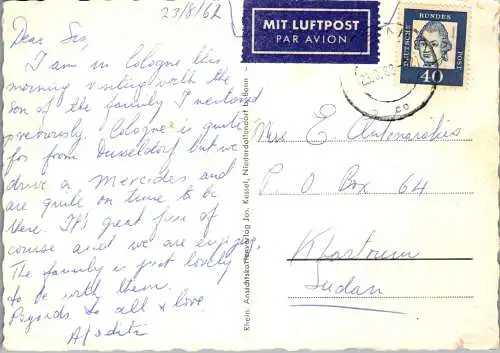 23/8/62
Dear Sis,
I am in Cologne this
morning visiting with the
son of the family I mentioned
previously. Cologne is quite
far from Dusseldorf but we
drive a Mercedes and
are quite on time to be
there. It's great fun of
course and we are enjoying.
The family is just lovely
to be with them.
Regards to all & love.
MIT LUFTPOST
PAR AVION
DEUTSCHE BUNDES POST
40
Miss E
P O Box 64
Khartoum
Sudan
Rhein. Ansichtskartenverlag Jos. Kessel, Niederdollendorf bei Bonn